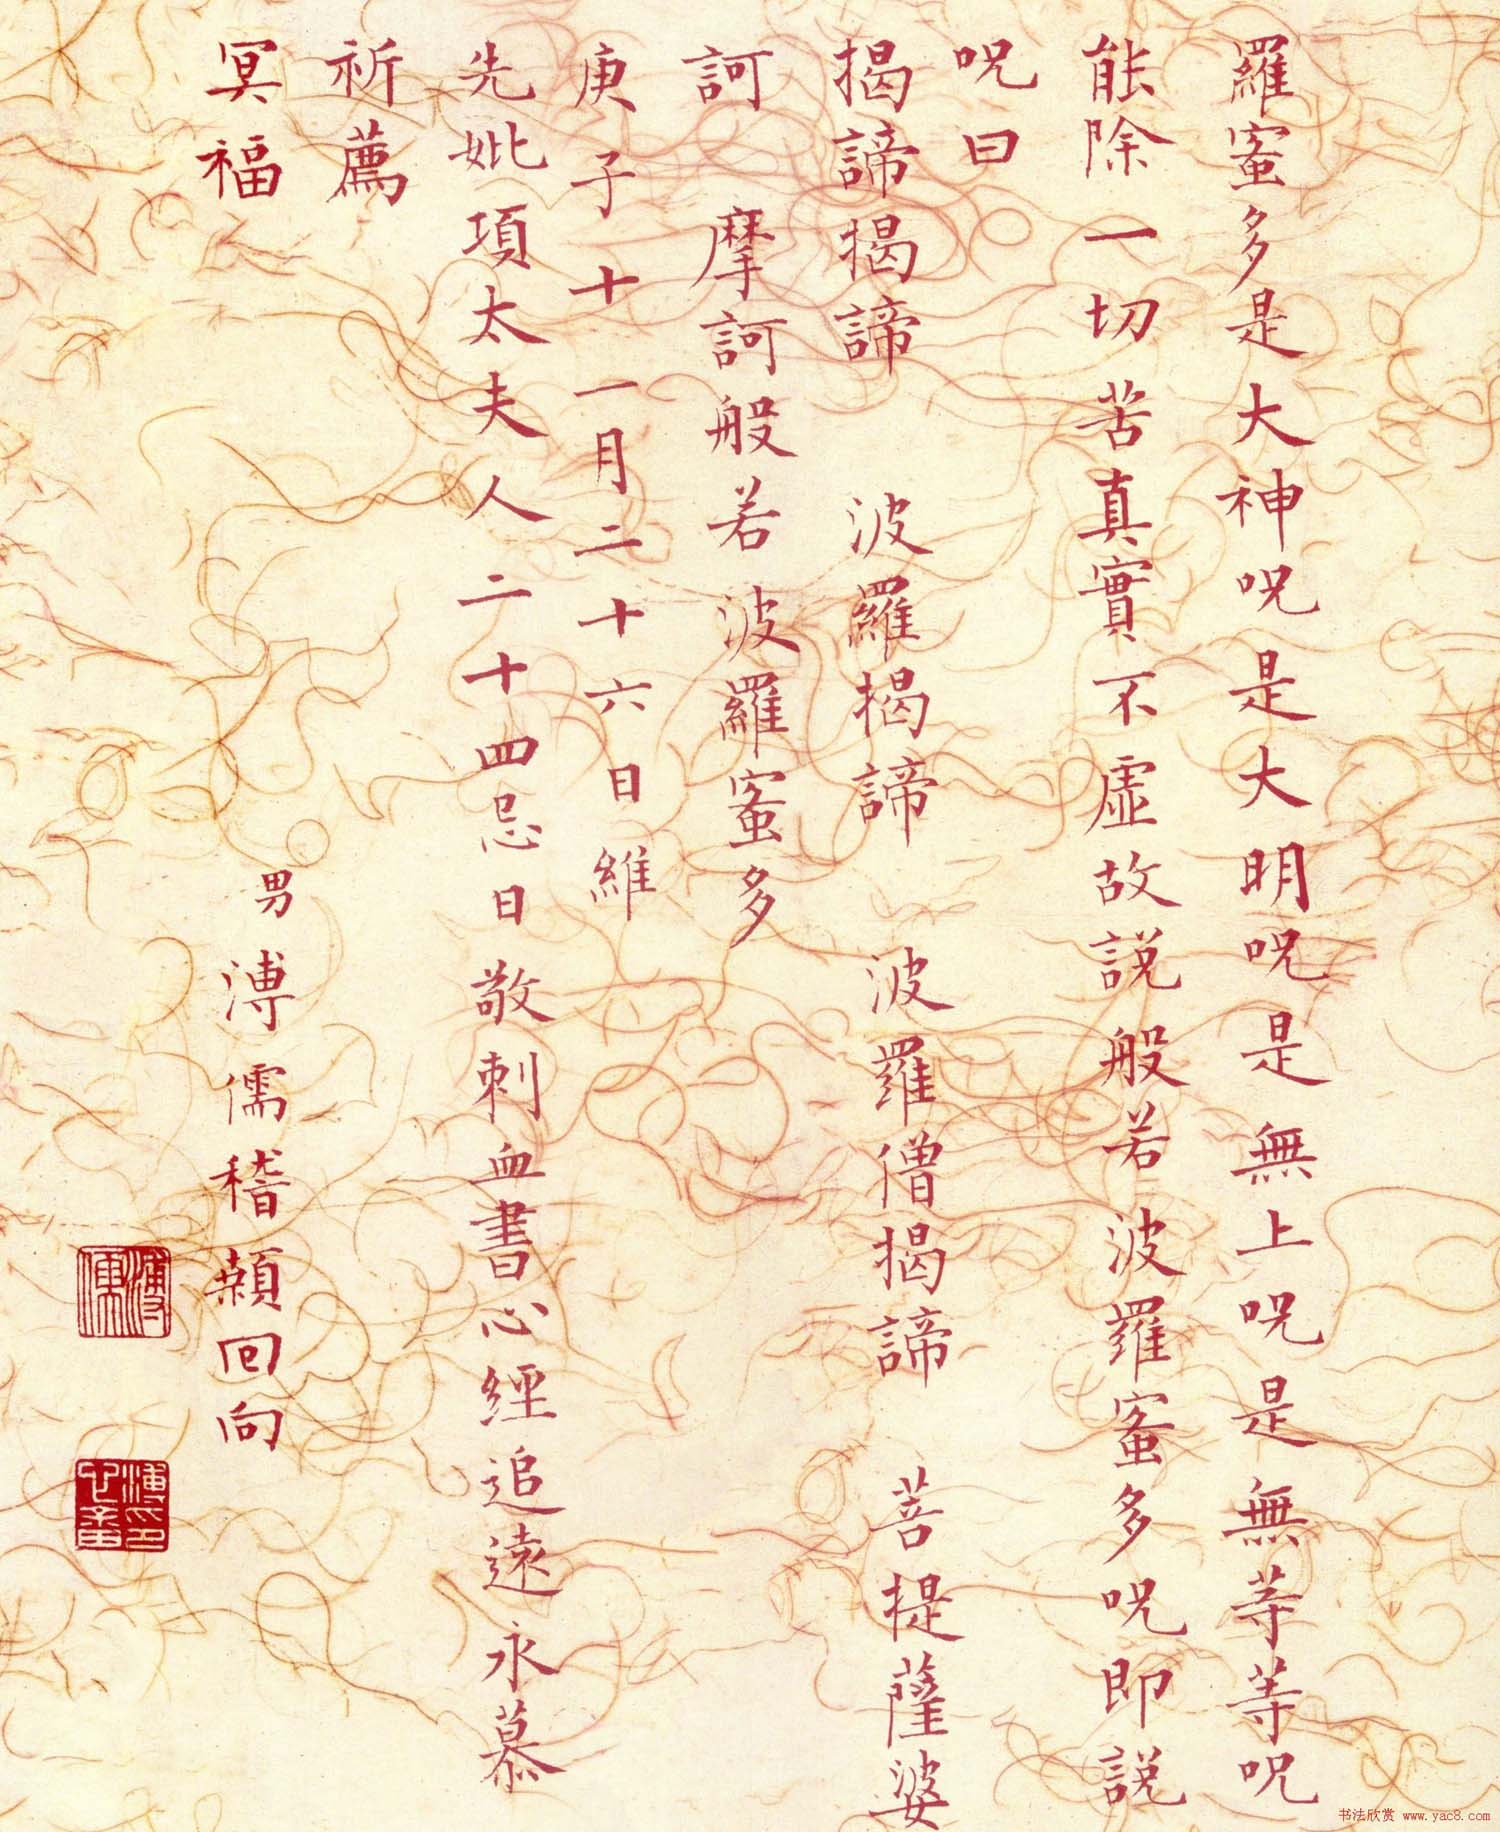 羅蜜多是大神呪是大明呪是無上呪是無等等呪
能除一切苦真實不虛故説般若波羅蜜多呪即説
呪曰
揭諦揭諦 波羅揭諦 波羅僧揭諦 菩提薩婆
訶 摩訶般若波羅蜜多
庚子十一月二十六日維
先妣項太夫人二十四忌日敬刺血書心經追遠永慕
祈薦
冥福
男溥儒稽顙回向
溥儒
书法欣赏 www.yac8.com